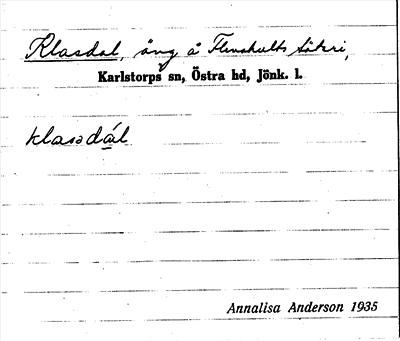 Klasdal, äng å Flenshults säteri,
Karlstorps sn, Östra hd, Jönk. l.
klasədál
Annalisa Anderson 1935